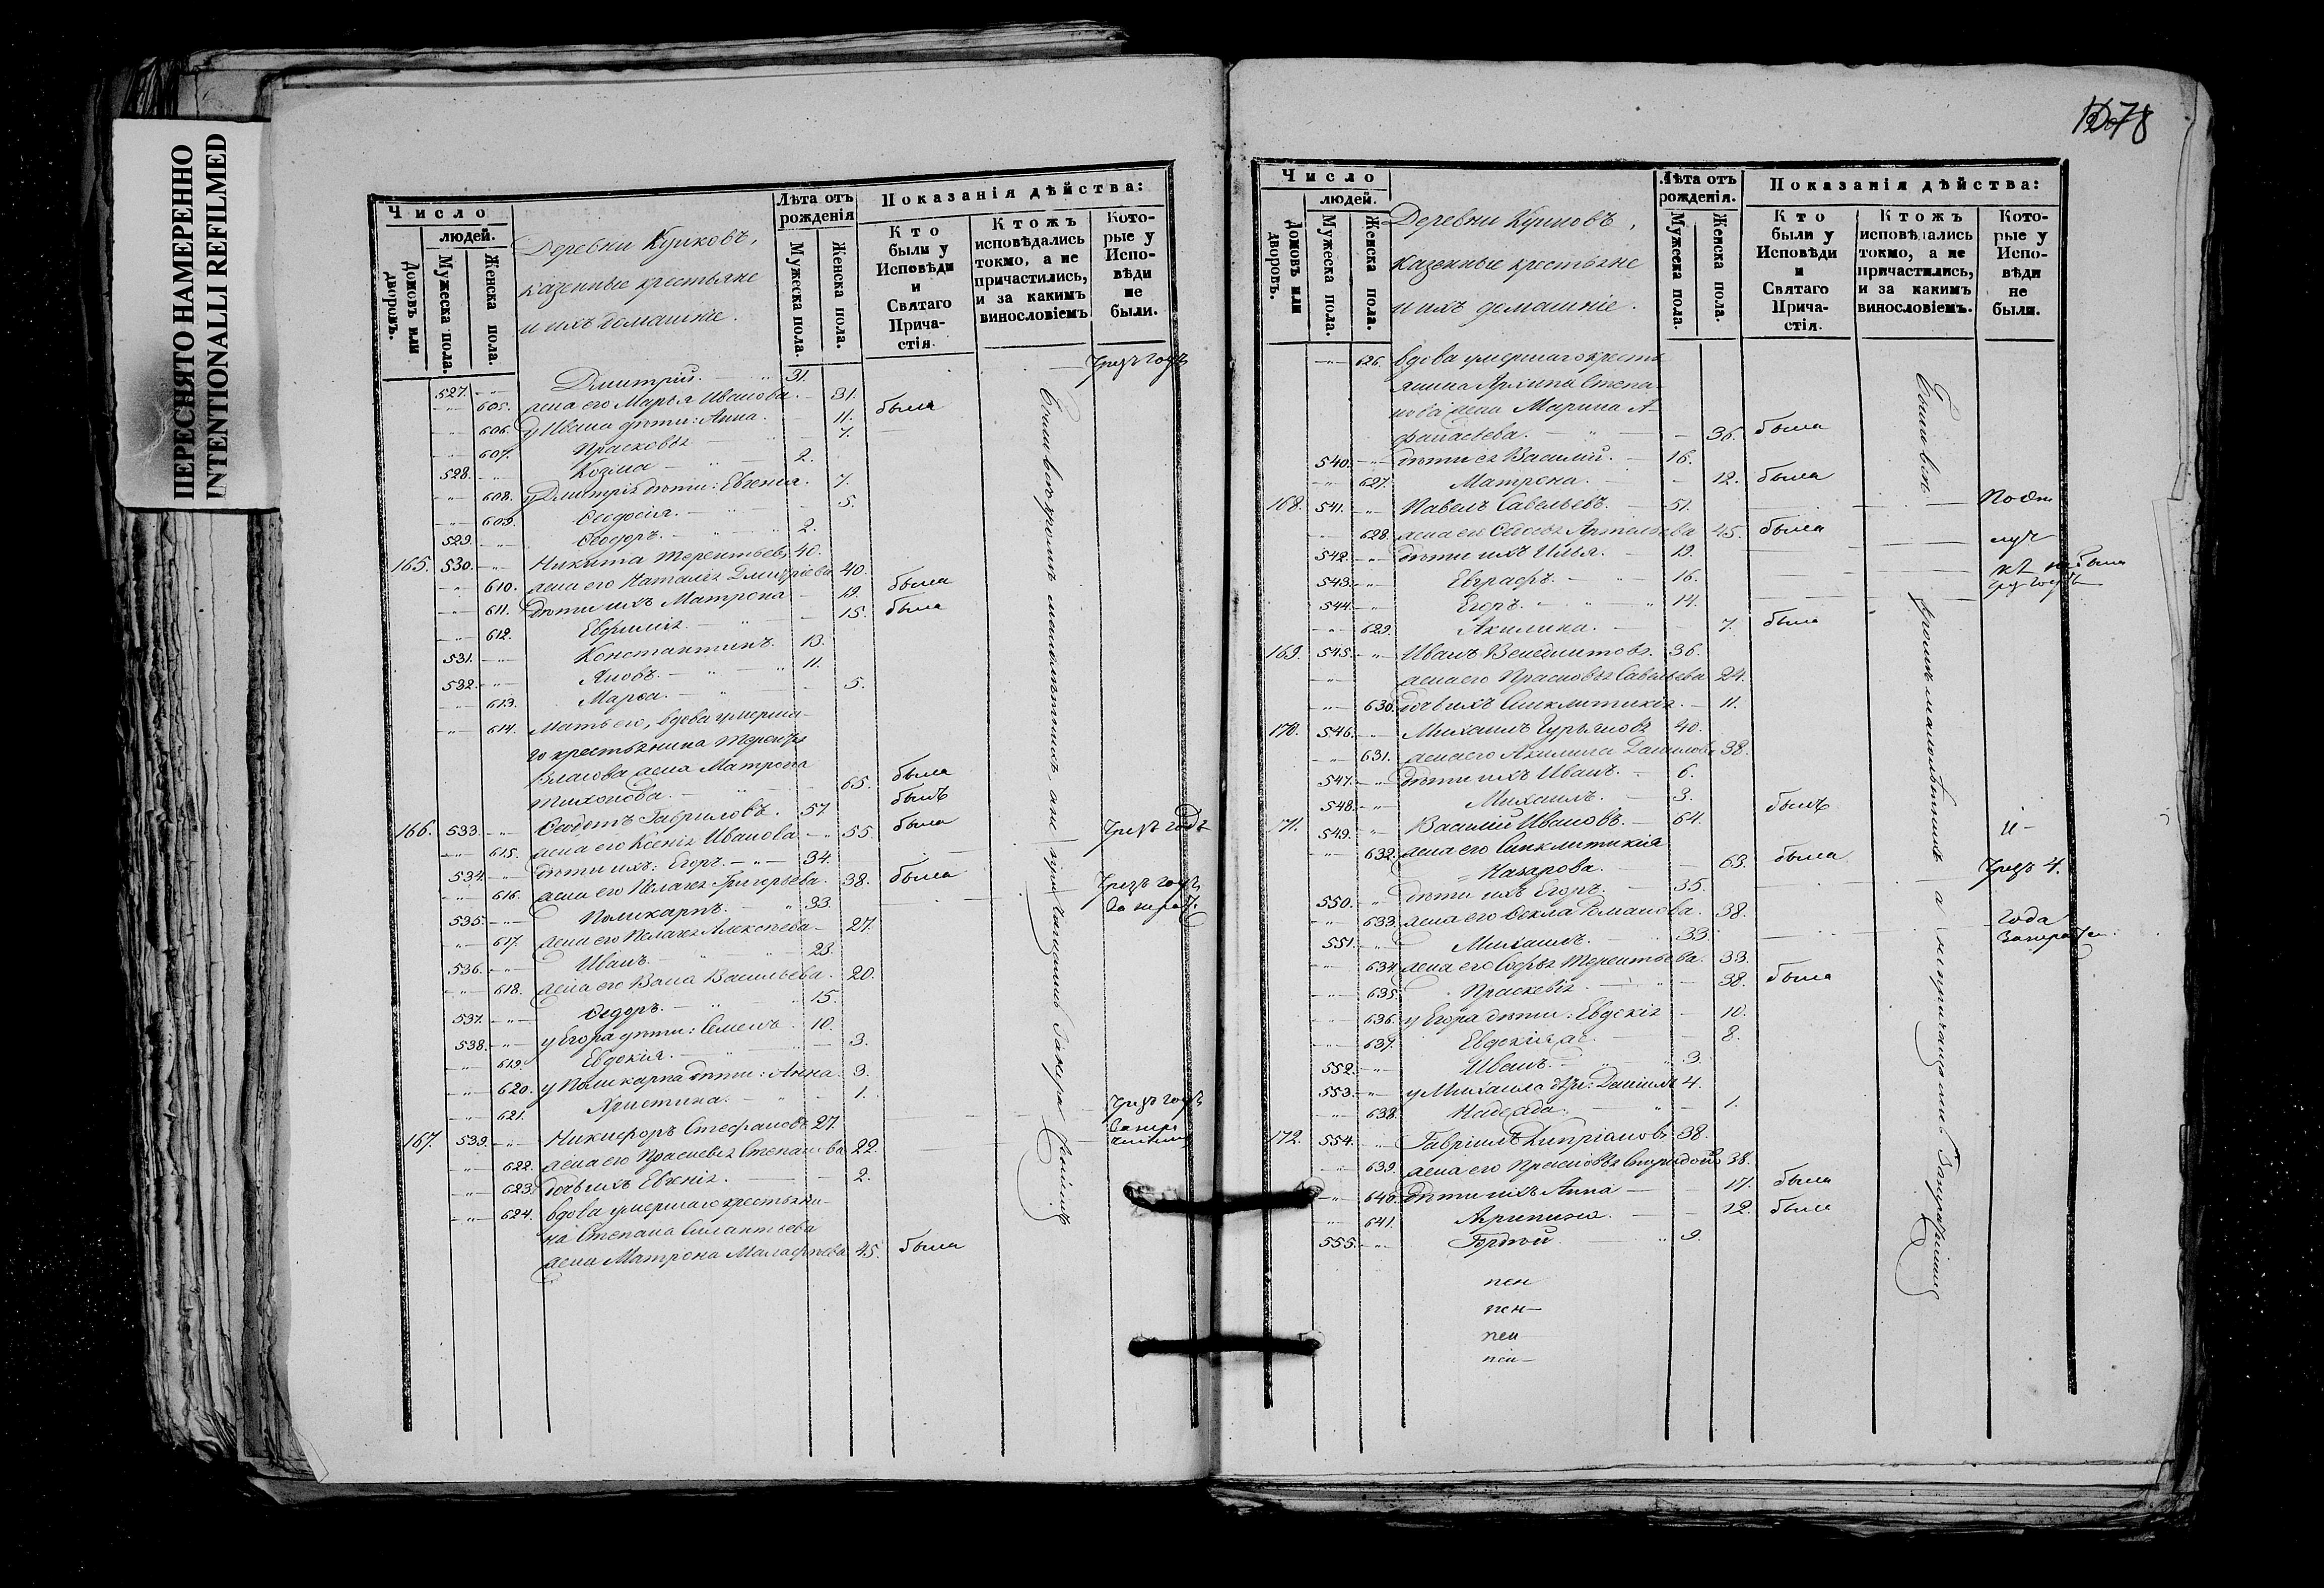 ПЕРЕСНЯТО НАМЕРЕННО
INTENTIONALLI REFILMED
Число
людей.
Домовъ или дворовъ.
Мужеска пола.
Женска пола.
Деревни Куликовъ,
казенные крестьяне
и ихъ домашніе.
Лѣта отъ рожденія
Мужеска пола.
Женска пола.
Показанія дѣйства:
Кто были у Исповѣди и Святаго Причастія.
Ктожъ исповѣдались токмо, а не причастились, и за какимъ винословіемъ
Которые у Исповѣди не были.
527. Дмитрій. 31. чрезъ годъ
605. жена его Марья Иванова. 31. была
606. у Ивана дѣти: Анна. 11.
607. Прасковья 7.
528. Козма 2.
608. у Дмитрія дѣти: Евгенія. 7.
609. Ѳеодосія. 5.
529. Ѳеодоръ. 2.
165. 530. Никита Терентьевъ 40.
610. жена его Наталья Дмитріева 40. была
611. дѣти ихъ Матрона 19. была
612. Евфимія. 15.
531. Константинъ. 13.
532. Яковъ. 11.
613. Марѳа. 5.
614. Мать его, вдова умерша-
го крестьянина Терентья
Власова жена Матрона
Тихонова. 65. была
166. 533. Ѳеодотъ Гавриловъ. 57. былъ
615. жена его Ксенія Иванова 55. была
534. дѣти ихъ: Егоръ. 34. чрезъ годъ
616. жена его Пелагея Григорьева. 38. была
535. Поликарпъ. 33. чрезъ годъ
617. жена его Пелагея Алексѣева 27.
536. Иванъ. 23.
618. жена его Васса Васильева. 20.
537. Ѳедоръ. 15.
538. у Егора дѣти: Семенъ. 10.
619. Евдокія. 3.
620. у Поликарпа дѣти: Анна. 3.
621. Христина. 1.
167. 539. Никифоръ Стефановъ 27. чрезъ годъ
622. жена его Прасковья Степанова 22.
623. дочь ихъ Евгенія. 2.
624. вдова умершаго крестьяни-
на Степана Силантьева
жена Матрона Малафѣева 45. была
78
Число
людей.
Домовъ или дворовъ.
Мужеска пола.
Женска пола.
Деревни Куликовъ,
казенные крестьяне
и ихъ домашніе.
Лѣта отъ рожденія.
Мужеска пола.
Женска пола.
Показанія дѣйства:
Кто были у Исповѣди и Святаго Причастія.
Ктожъ исповѣдались токмо, а не причастились, и за какимъ винословіемъ.
Которые у Исповѣди не были.
626. вдова умершаго кресть
янина Архипа Степа-
нова жена Марина А-
фанасьева. 36. была
540. дѣти ея Василій. 16.
627. Матрона. 12. была
168. 541. Павелъ Савельевъ. 51.
628. жена его Ѳеосья Артемьева 45. была
542. дѣти ихъ Илья. 19.
543. Евграфъ. 16.
544. Егоръ. 14.
629. Акилина. 7. была
169. 545. Иванъ Венедиктовъ. 36.
жена его Прасковья Савельева 24.
630. дочь ихъ Синклитикія. 11.
170. 546. Михаилъ Гурьяновъ 40.
631. жена его Акилина Данилова 38.
547. дѣти ихъ Иванъ. 6.
548. Михаилъ. 3.
171. 549. Василій Ивановъ. 64. былъ
632. жена его Синклитикія
Назарова. 63. была
550. дѣти ихъ Егоръ. 35. чрезъ 4.
633. жена его Ѳекла Романова. 38. года
551. Михаилъ. 33.
634. жена его Софья Терентьева. 33.
635. Праскевія. 38. была
636. у Егора дѣти: Евдокія 10.
637. Евдокія 8.
552. Иванъ. 3.
553. у Михаила дѣти: Даніилъ 4.
638. Надежда. 1.
172. 554. Гавріилъ Кипріановъ 38.
639. жена его Прасковья Спиридонова 38.
640. дѣти ихъ Анна 17. была
641. Агрипина. 12. была
555. Гордѣй. 9.